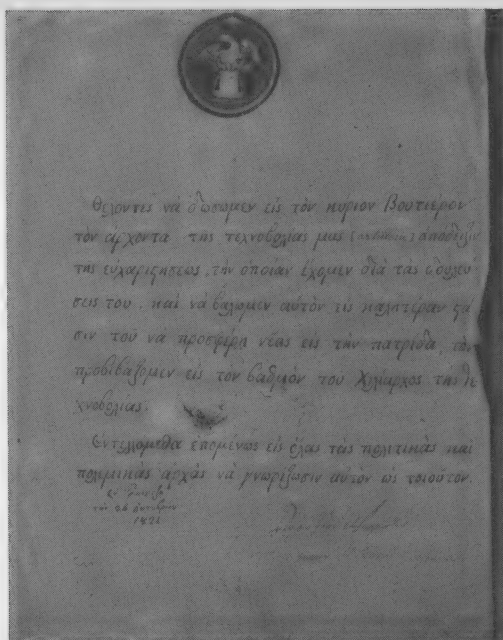 Θέλοντες νὰ δώσωμεν εἰς τὸν κύριον Βουτιέρον
τὸν ἄρχοντα τῆς τεχνοβολίας μας ἀπόδειξιν
τῆς εὐχαριστήσεως, τὴν ὁποίαν ἔχομεν διὰ τὰς δουλεύ
σεις του, καὶ νὰ βάλωμεν αὐτὸν εἰς καλητέραν στά
σιν τοῦ νὰ προσφέρῃ νέας εἰς τὴν πατρίδα, τὸν
προβιβάζομεν εἰς τὸν βαθμὸν τοῦ Χιλίαρχος τῆς τε
χνοβολίας.
Ἐντελόμεθα ἑπομένως εἰς ὅλας τὰς πολιτικὰς καὶ
πολεμικὰς ἀρχὰς νὰ γνωρίζωσιν αὐτὸν ὡς τοιοῦτον.
1821